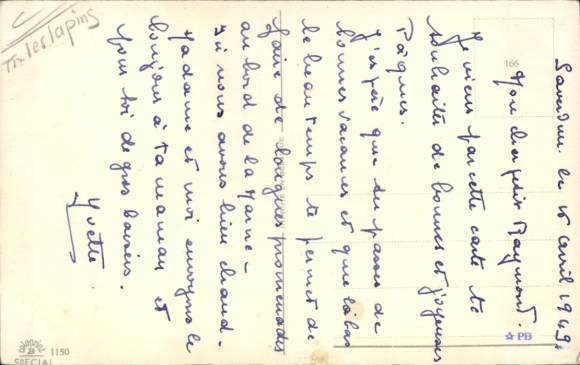 Saverdun le 15 avril 1949.
Mon cher petit Raymond.
Je viens par cette carte te
souhaiter de bonnes et joyeuses
Pâques.
J'espère que tu passes de
bonnes vacances et que là bas
le beau temps te permet de
faire de longues promenades
au bord de la Marne -
Ici nous avons bien chaud -
Madame et moi envoyons le
bonjour à ta maman et
pour toi de gros baisers.
Yvette
les lapins
166
PB
1150
SPECIAL